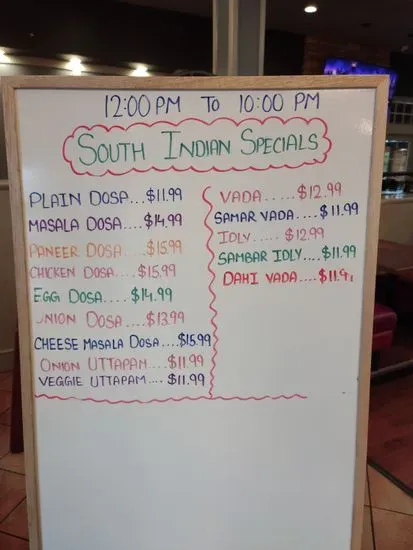 12:00 PM TO 10:00 PM
SOUTH INDIAN SPECIALS
PLAIN DOSA...$11.99
MASALA DOSA....$14.99
PANEER DOSA....$15.99
CHICKEN DOSA....$15.99
EGG DOSA.....$14.99
UNION DOSA....$13.99
CHEESE MASALA DOSA....$15.99
ONION UTTAPAM....$11.99
VEGGIE UTTAPAM....$11.99
VADA.....$12.99
SAMAR VADA....$11.99
IDLY.....$12.99
SAMBAR IDLY....$11.99
DAHI VADA....$11.9